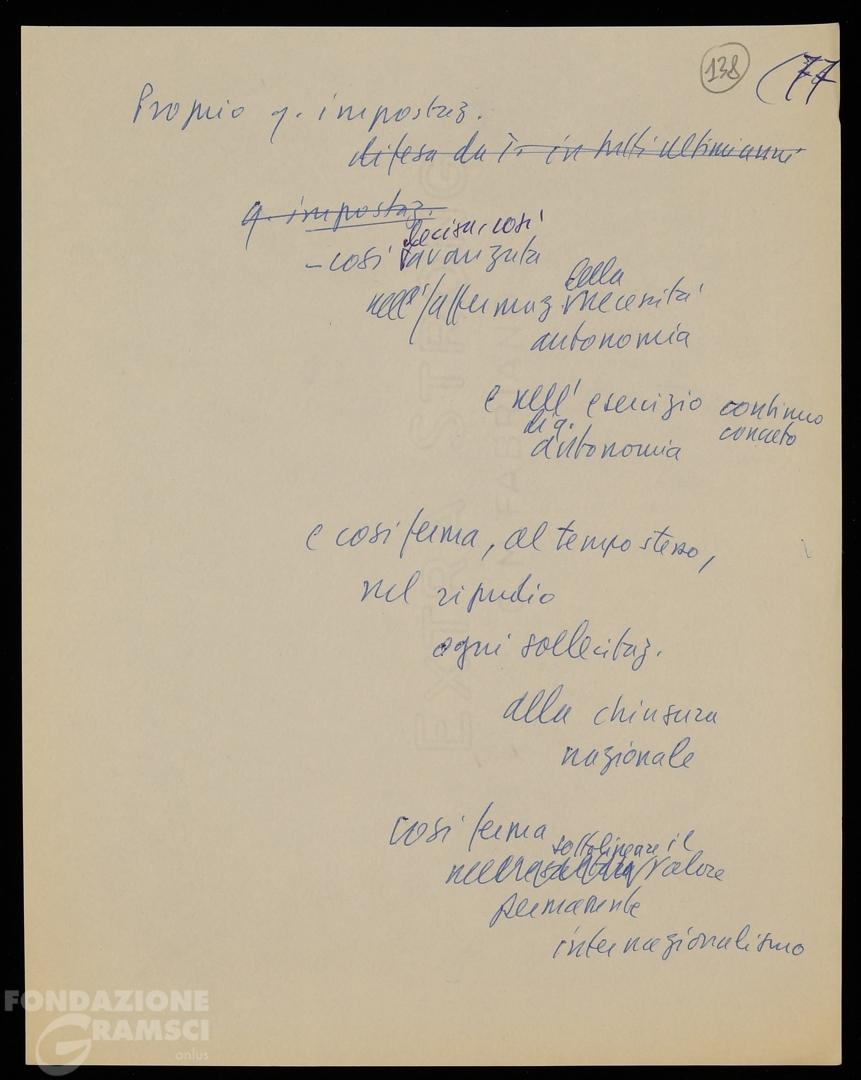 138 (77
Proprio q. impostaz.
difesa da T. in tutti ultimi anni
q. impostaz.
decisa, così
- così avanzata
della
nell'affermaz. necessità
autonomia
e nell' esercizio continuo
di q. concreto
autonomia
e così ferma, al tempo stesso,
nel ripudio
ogni sollecitaz.
alla chiusura
nazionale
così ferma
sottolineare il
valore
permanente
internazionalismo
EXTRA STRONG
FABRIANO
FONDAZIONE
GRAMSCI
onlus